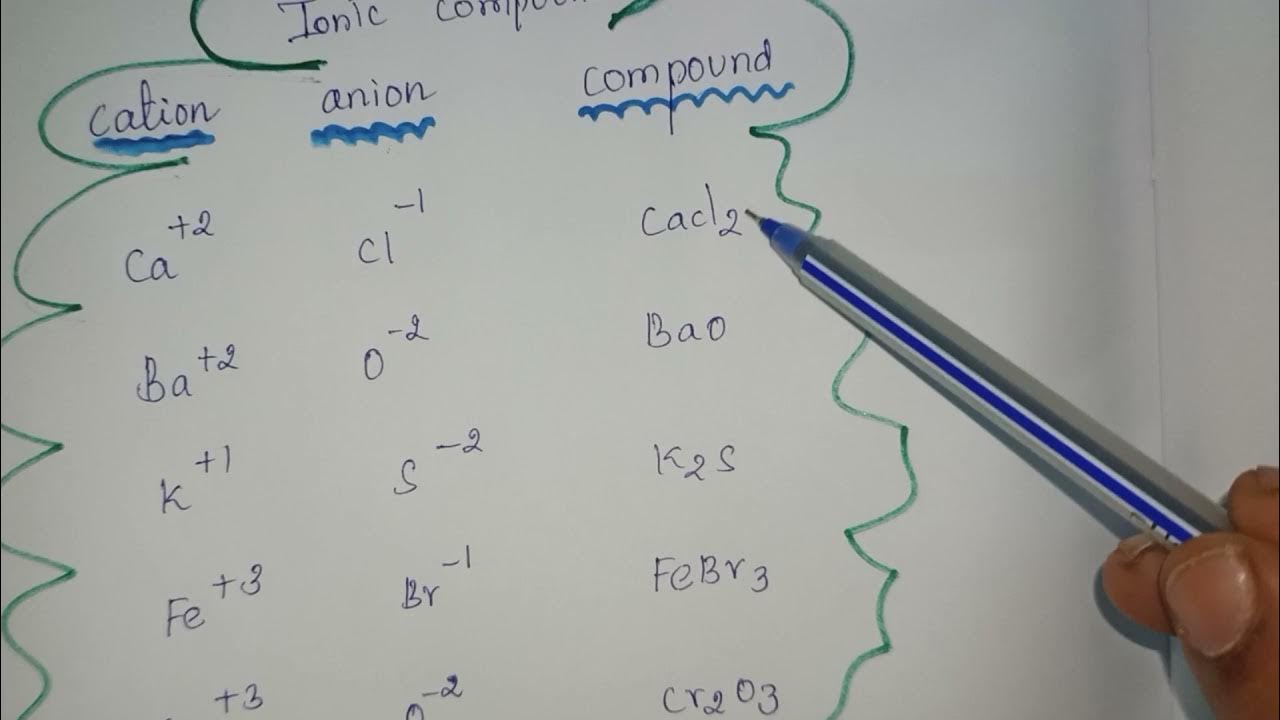 Ionic
cation anion compound
Ca+2 Cl-1 Cacl2
Ba+2 O-2 BaO
K+1 S-2 K2S
Fe+3 Br-1 FeBr3
+3 -2 Cr2O3